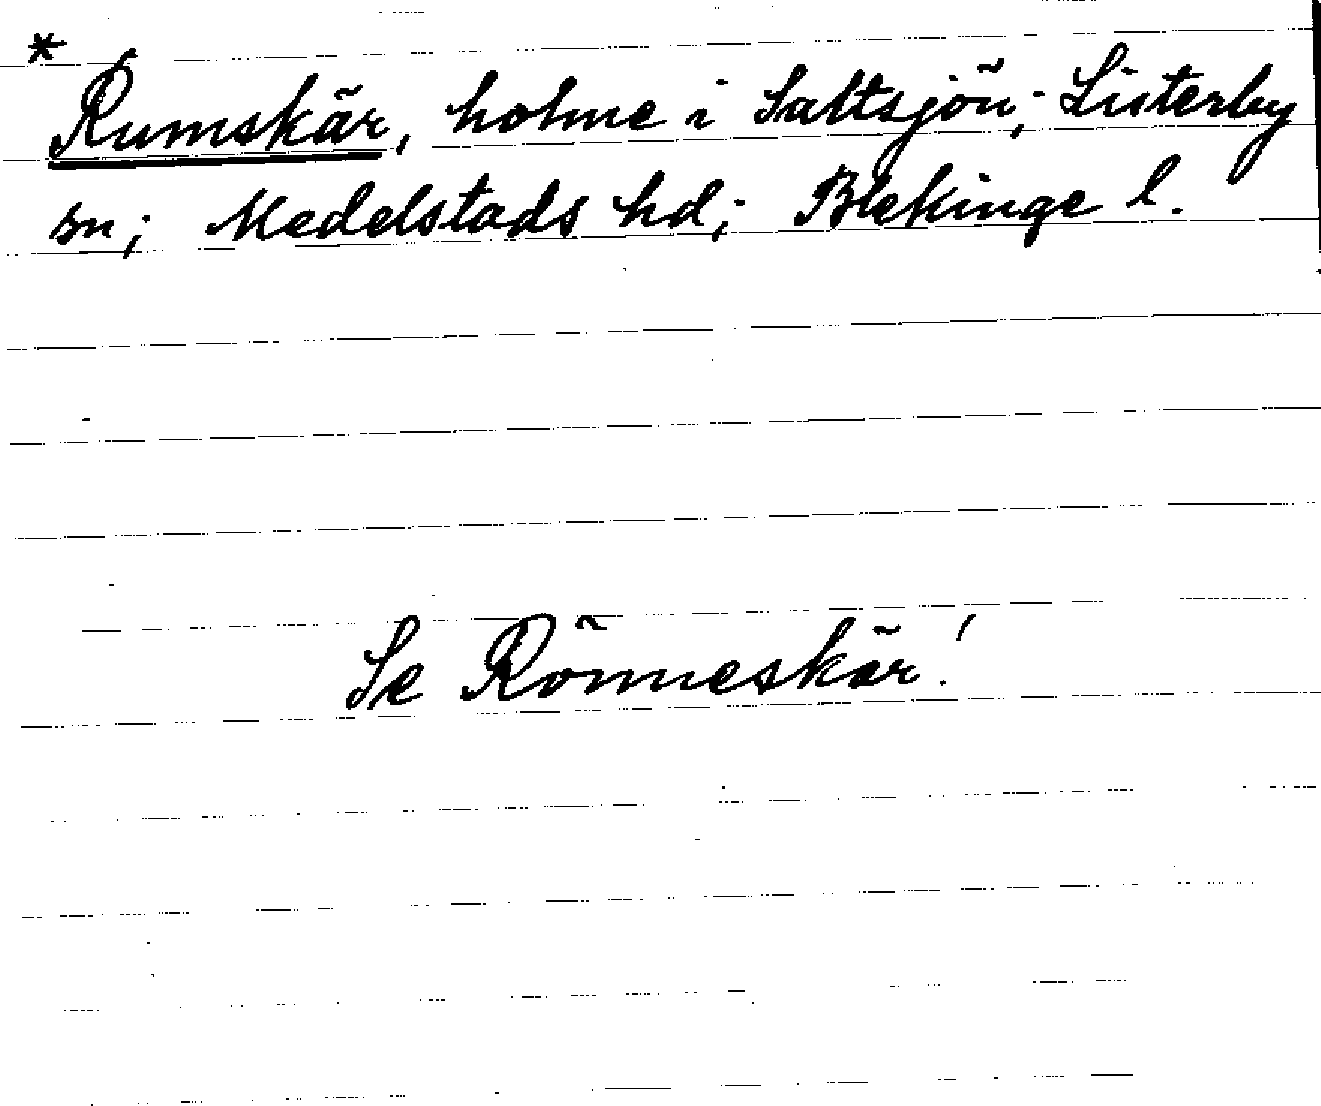 * Rumskär, holme i Saltsjön; Listerby
sn; Medelstads hd; Blekinge l.
Se Rönneskär!